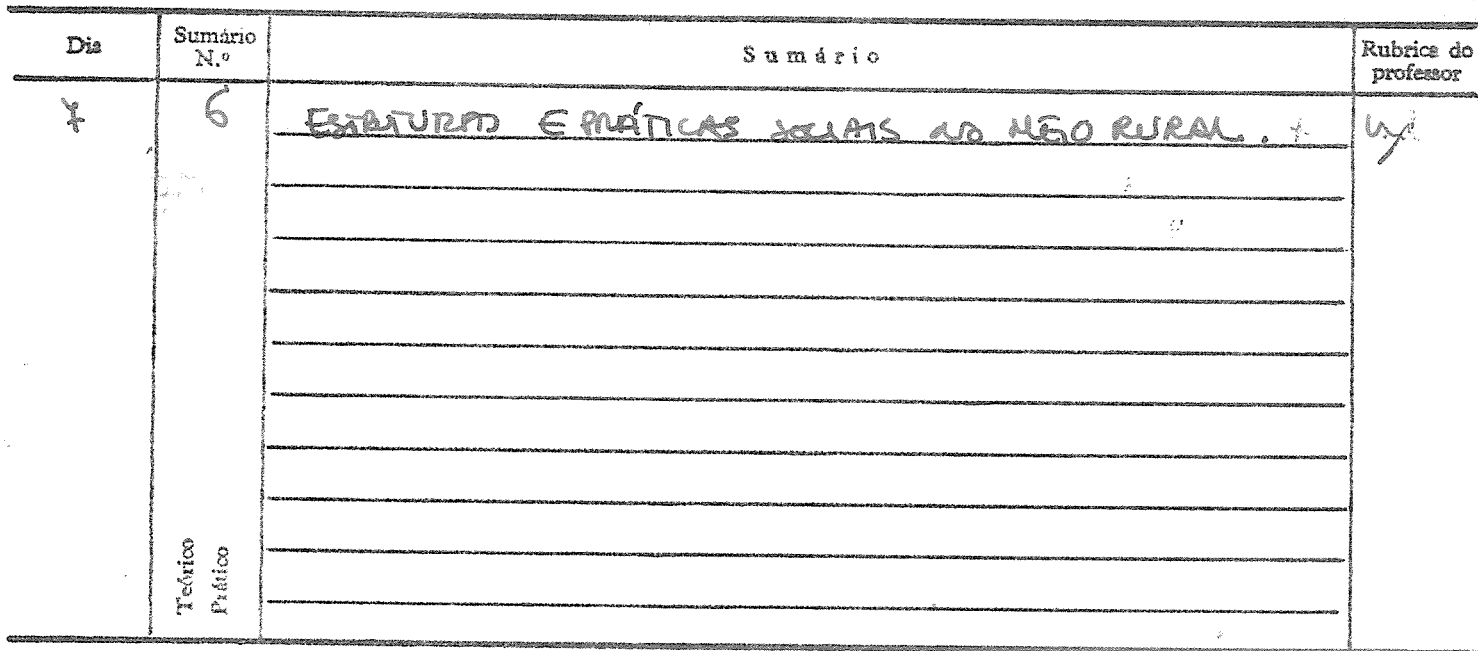 Dia
Sumário N.º
Sumário
Rubrica do professor
7
6
ESTRUTURAS E PRÁTICAS SOCIAIS NO MEIO RURAL.
Teórico
Prático